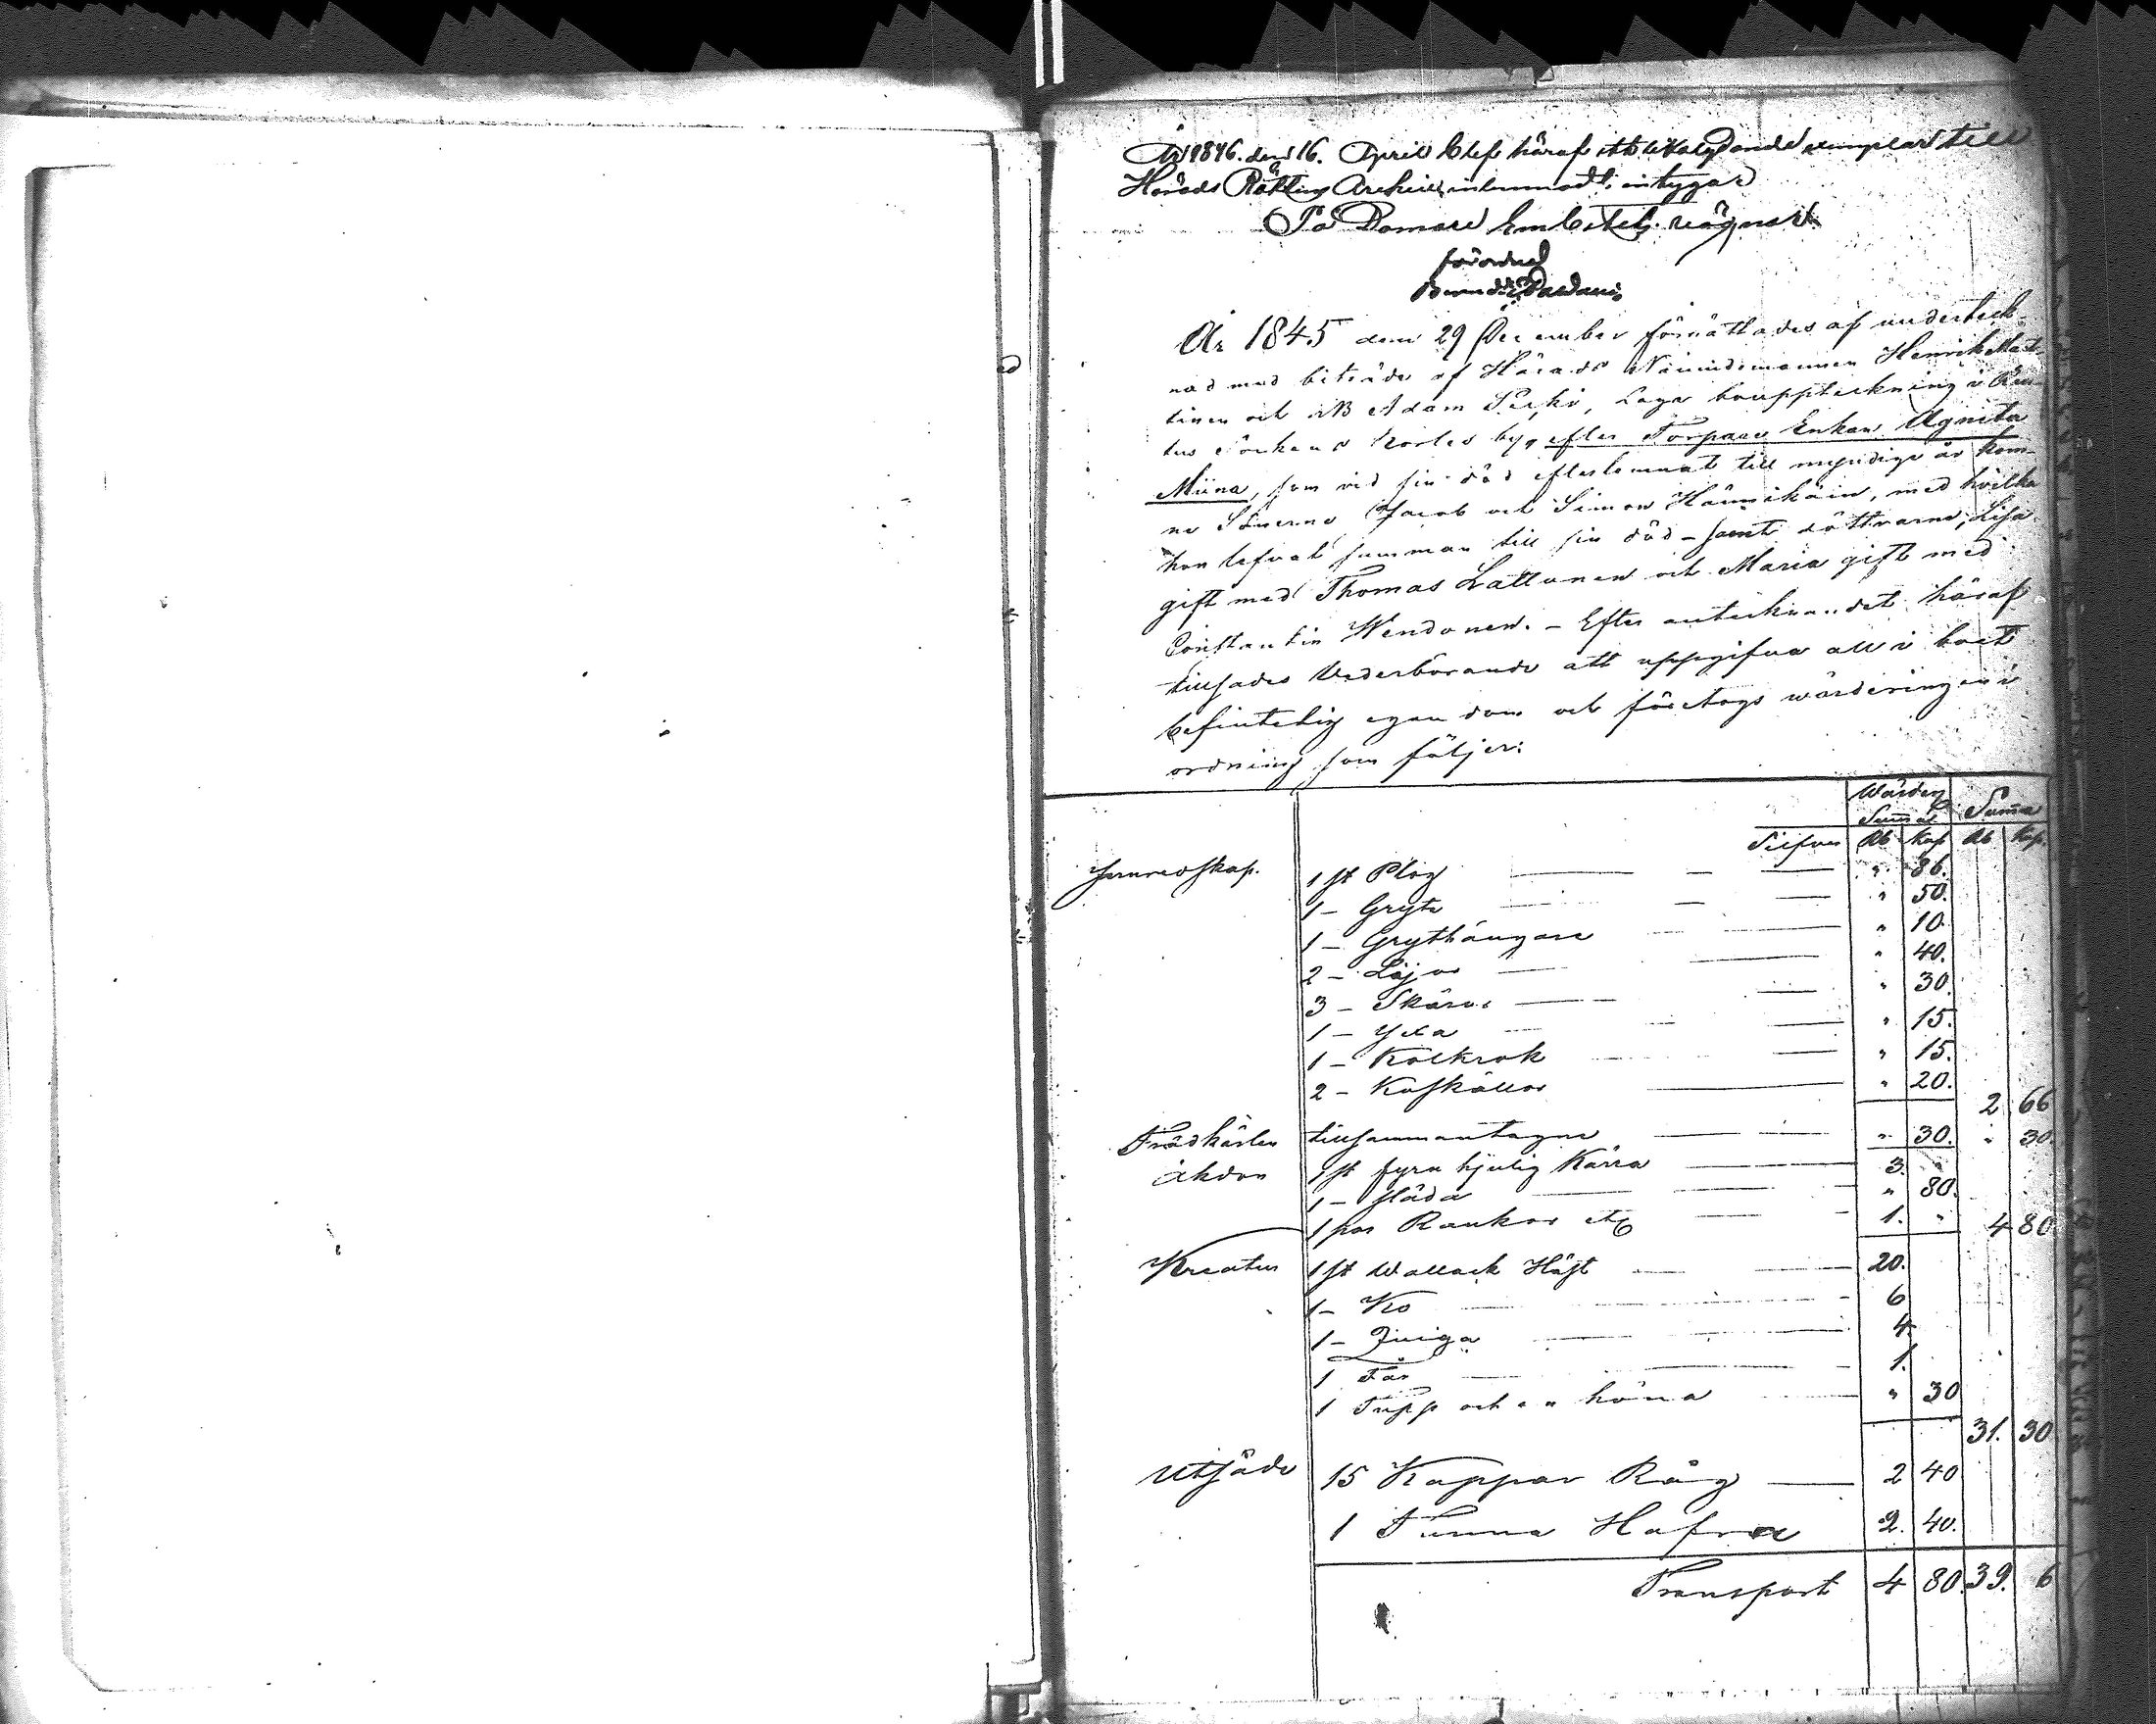 År 1846. den 16. April blef häraf ett lika lydande exemplar till
Härads Rättens Archiv inlemnadt, intygar
På Domare Embetets vägnar
förordnad
År 1845 den 29 December förrättades af underteck-
nad med biträde af Härads Nämndemannen Henrik Mat-
tinen och NB Adam Pesku, Laga bouppteckning i
tus Sockens by, efter Torpare Enkan Agneta
Miina, som vid sin död efterlemnat till myndige år kom-
ne Sönerne Jacob och Simon Hännikäin, med hvilka
hon lefvat samman till sin död – samt döttrarne, Lisa
gift med Thomas Lattunen och Maria gift med
Constantin Wendonen. – Efter antecknandet häraf
tillsades Vederbörande att uppgifva all i boet
befintelig egendom och företogs wärderingen i
ordning som följer:
Wärder Summa
Silfver Rb Kop Rb Kop.
Jernredskap. 1 st Plog " 86.
1 – Gryta " 50.
1 – Grythängare " 10.
2 – Lijor " 40.
3 – Skäror " 30.
1 – Yxa " 15.
1 – Kolkrok " 15.
2 – Koskällor " 20.
2 66
Trädkärlen tillsammantagne " 30. " 30.
Åkdon 1 st fyra hjulig Kärra 3. "
1 – släda " 80.
1 par Rankor etc 1. " 4 80
Kreatur 1 st Wallack Häst 20.
1 – Ko 6
1 – Quiga 4.
1 Får 1.
1 Tupp och en höna " 30
31. 30
Utsäde 15 Kappar Råg 2 40
1 Tunna Hafra 2. 40.
Transport 4 80. 39. 6